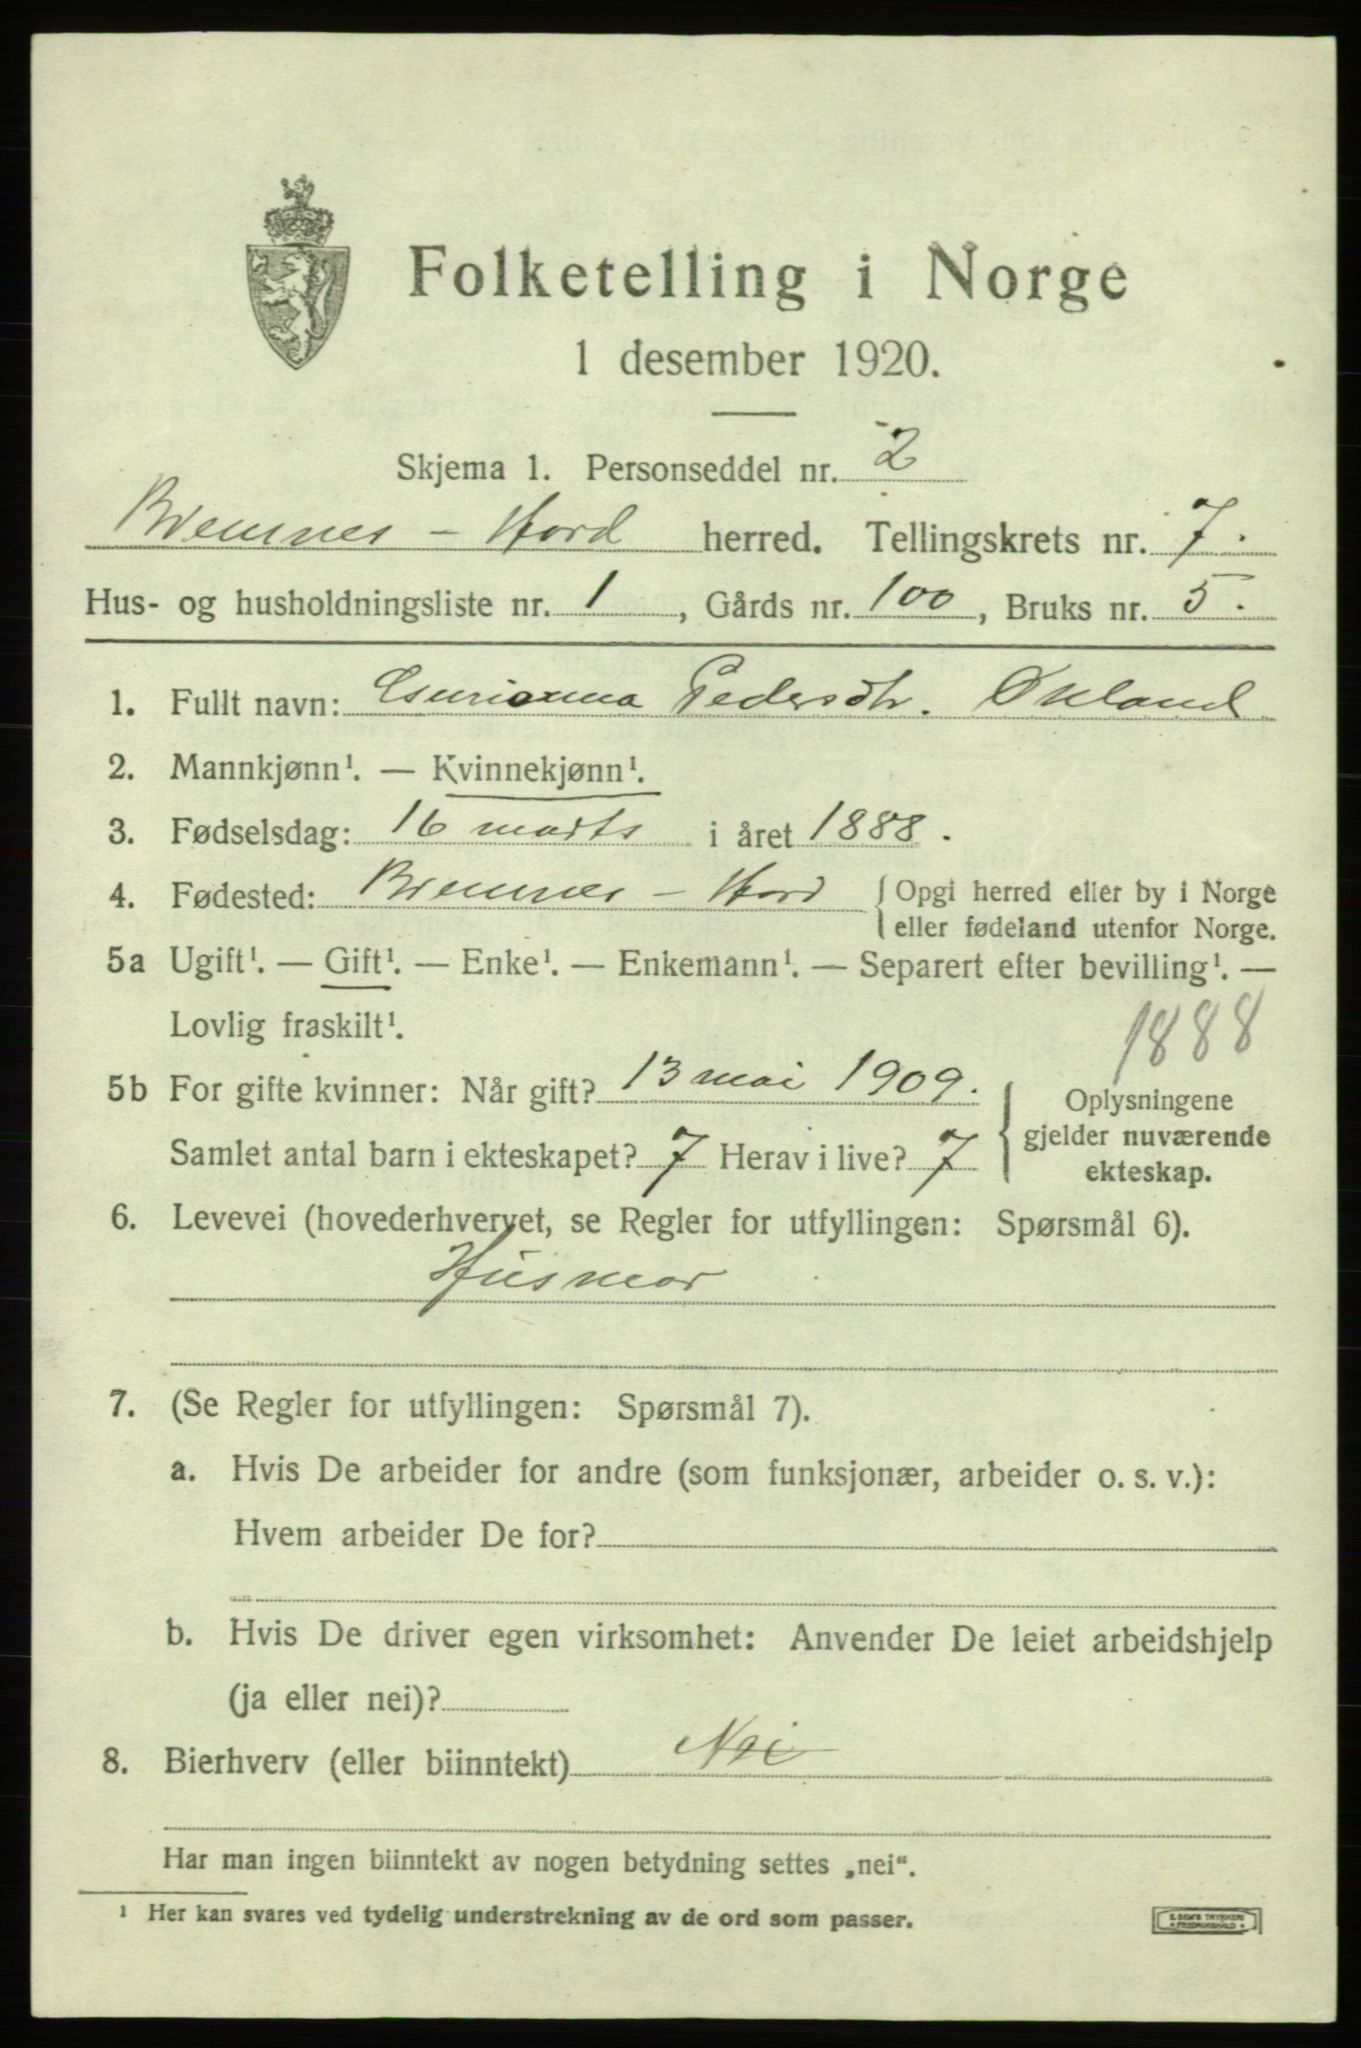 Folketelling i Norge
1 desember 1920.
Skjema 1. Personseddel nr. 2
Bremnes - Hord herred. Tellingskrets nr. 7.
Hus- og husholdningsliste nr. 1, Gårds nr. 100, Bruks nr. 5.
1. Fullt navn: Pedersdtr. Økland
2. Mannkjønn¹. — Kvinnekjønn¹.
3. Fødselsdag: 16 marts i året 1888.
4. Fødested: Bremnes - Hord { Opgi herred eller by i Norge
eller fødeland utenfor Norge.
5a Ugift¹. — Gift¹. — Enke¹. — Enkemann¹. — Separert efter bevilling¹. —
Lovlig fraskilt¹.
1888
5b For gifte kvinner: Når gift? 13 mai 1909.
Samlet antal barn i ekteskapet? 7 Herav i live? 7
Oplysningene
gjelder nuværende
ekteskap.
6. Levevei (hovederhvervet, se Regler for utfyllingen: Spørsmål 6).
Husmor
7. (Se Regler for utfyllingen: Spørsmål 7).
a. Hvis De arbeider for andre (som funksjonær, arbeider o. s. v.):
Hvem arbeider De for?
b. Hvis De driver egen virksomhet: Anvender De leiet arbeidshjelp
(ja eller nei)?
8. Bierhverv (eller biinntekt) Nei
Har man ingen biinntekt av nogen betydning settes „nei“.
¹ Her kan svares ved tydelig understrekning av de ord som passer.